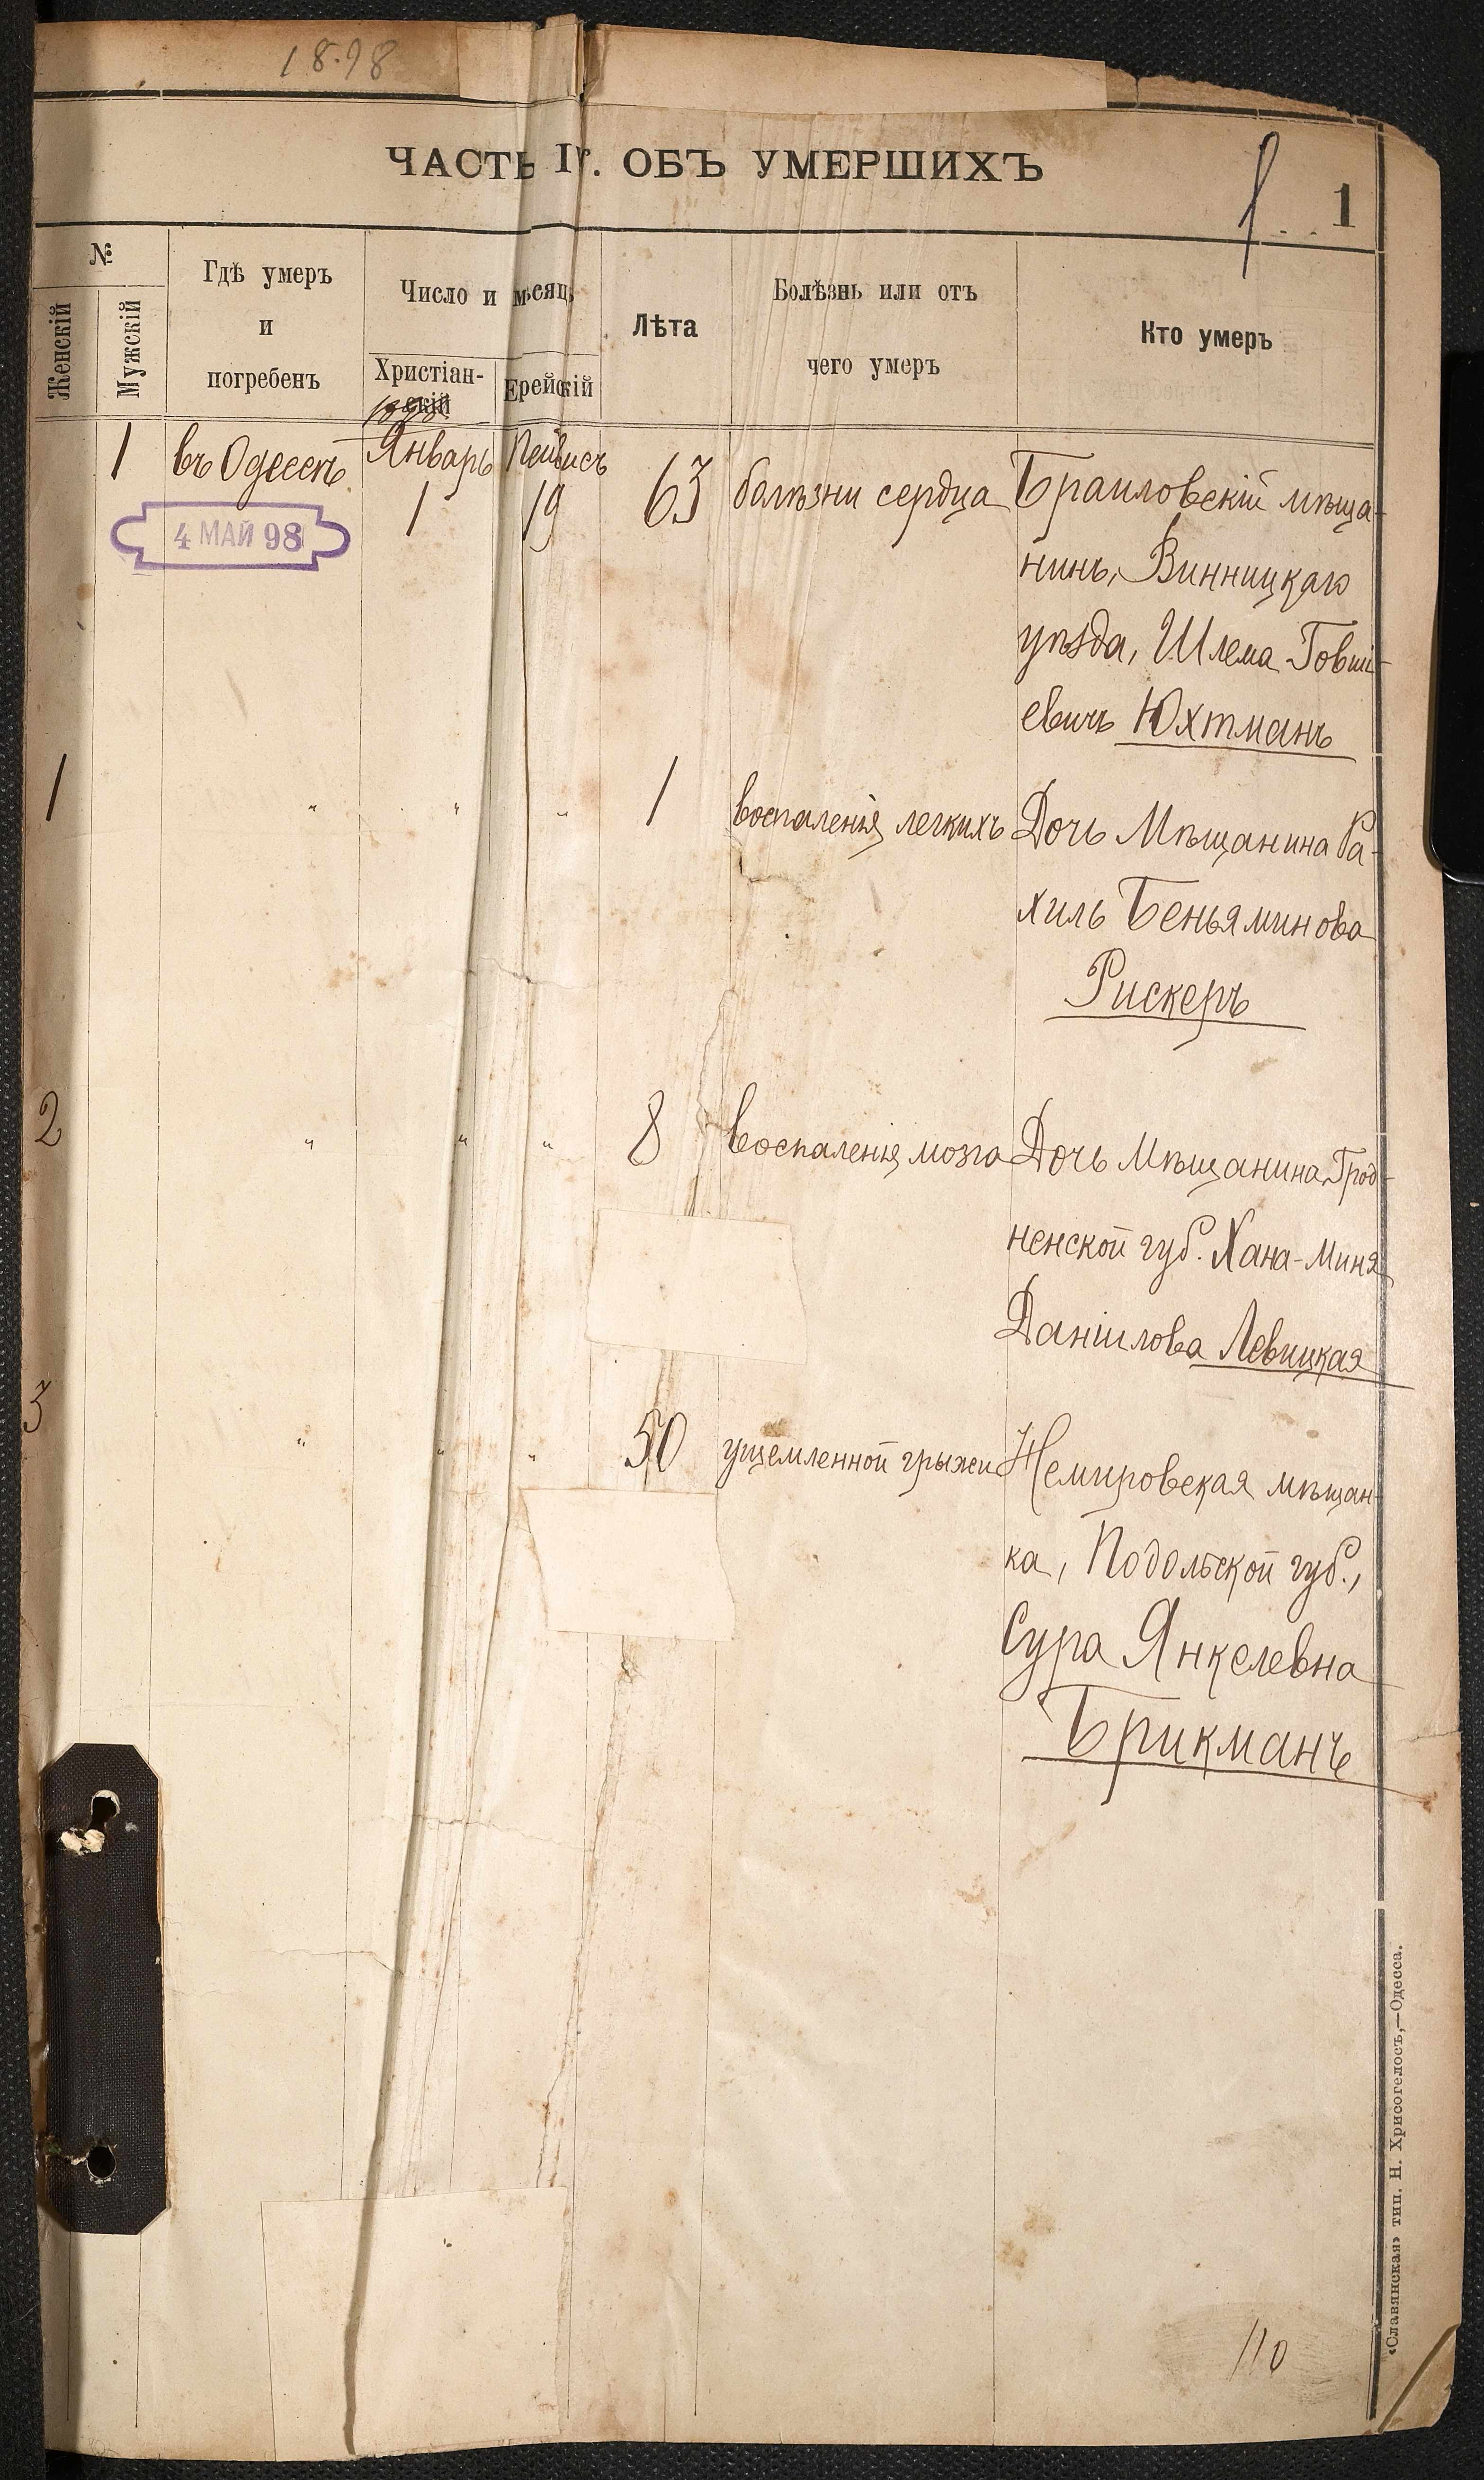 18.98
ЧАСТЬ IV. ОБЪ УМЕРШИХЪ
1
№
Женскій
Мужскій
Гдѣ умеръ
и
погребенъ
Число и мѣсяц
Христіан-
скій
Ерейскій
Лѣта
Болѣзнь или отъ
чего умеръ
Кто умеръ
1898
1 въ Одессѣ Январь Тейвисъ
1 19 63 болѣзни сердца Браиловскій мѣща-
нинъ, Винницкаго
уѣзда, Шлема Говши-
евичъ Юхтманъ
4 МАЙ 98
1 " " " 1 воспаленія легкихъ Дочь Мѣщанина Ра-
хиль Беньяминова
Рискеръ
2 " " " 8 воспаленія мозга Дочь Мѣщанина Грод-
ненской губ. Хана-Миня
Даніилова Левицкая
3 " " " 50 ущемленной грыжи Немировская мѣщан-
ка, Подольской губ.,
Сура Янкелевна
Брикманъ
«Славянская» тип. Н. Хрисогелосъ,—Одесса.
110